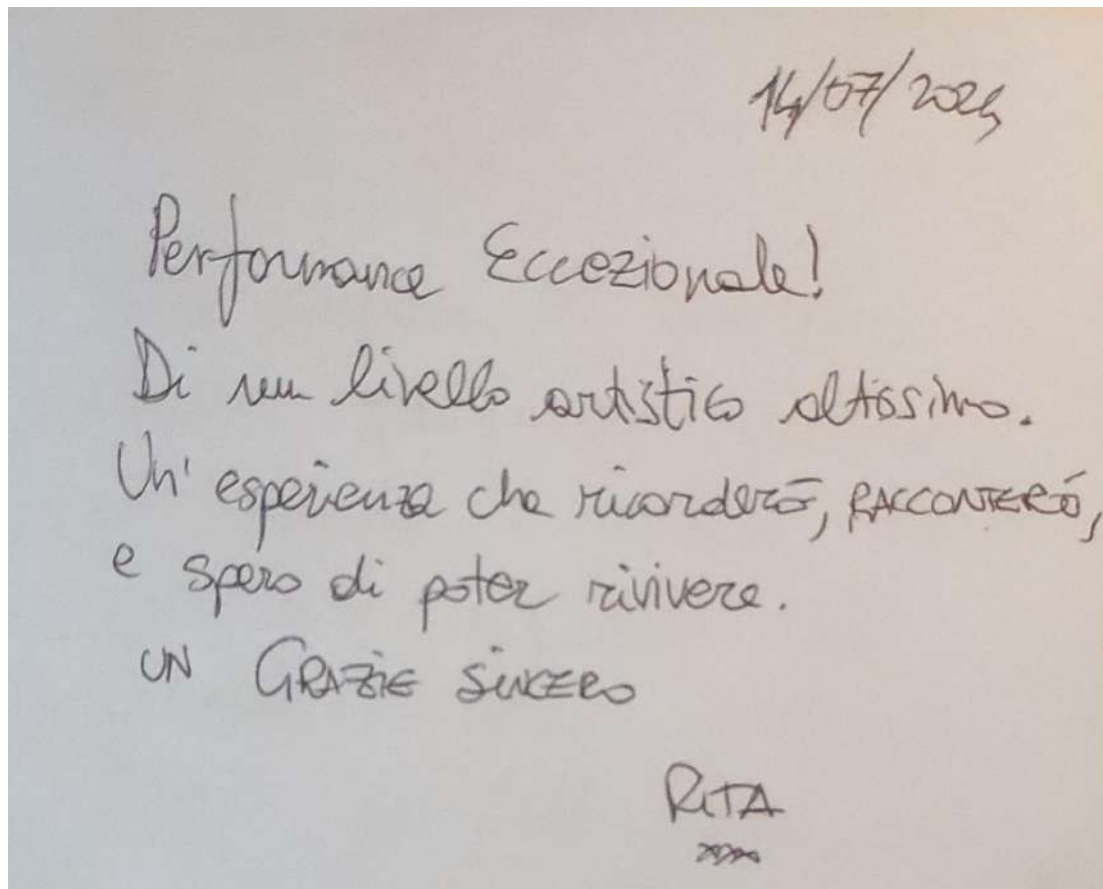 14/07/2024
Performance Eccezionale!
Di un livello artistico altissimo.
Un' esperienza che ricorderò, RACCONTERÒ,
e spero di poter rivivere.
UN GRAZIE SINCERO
RITA